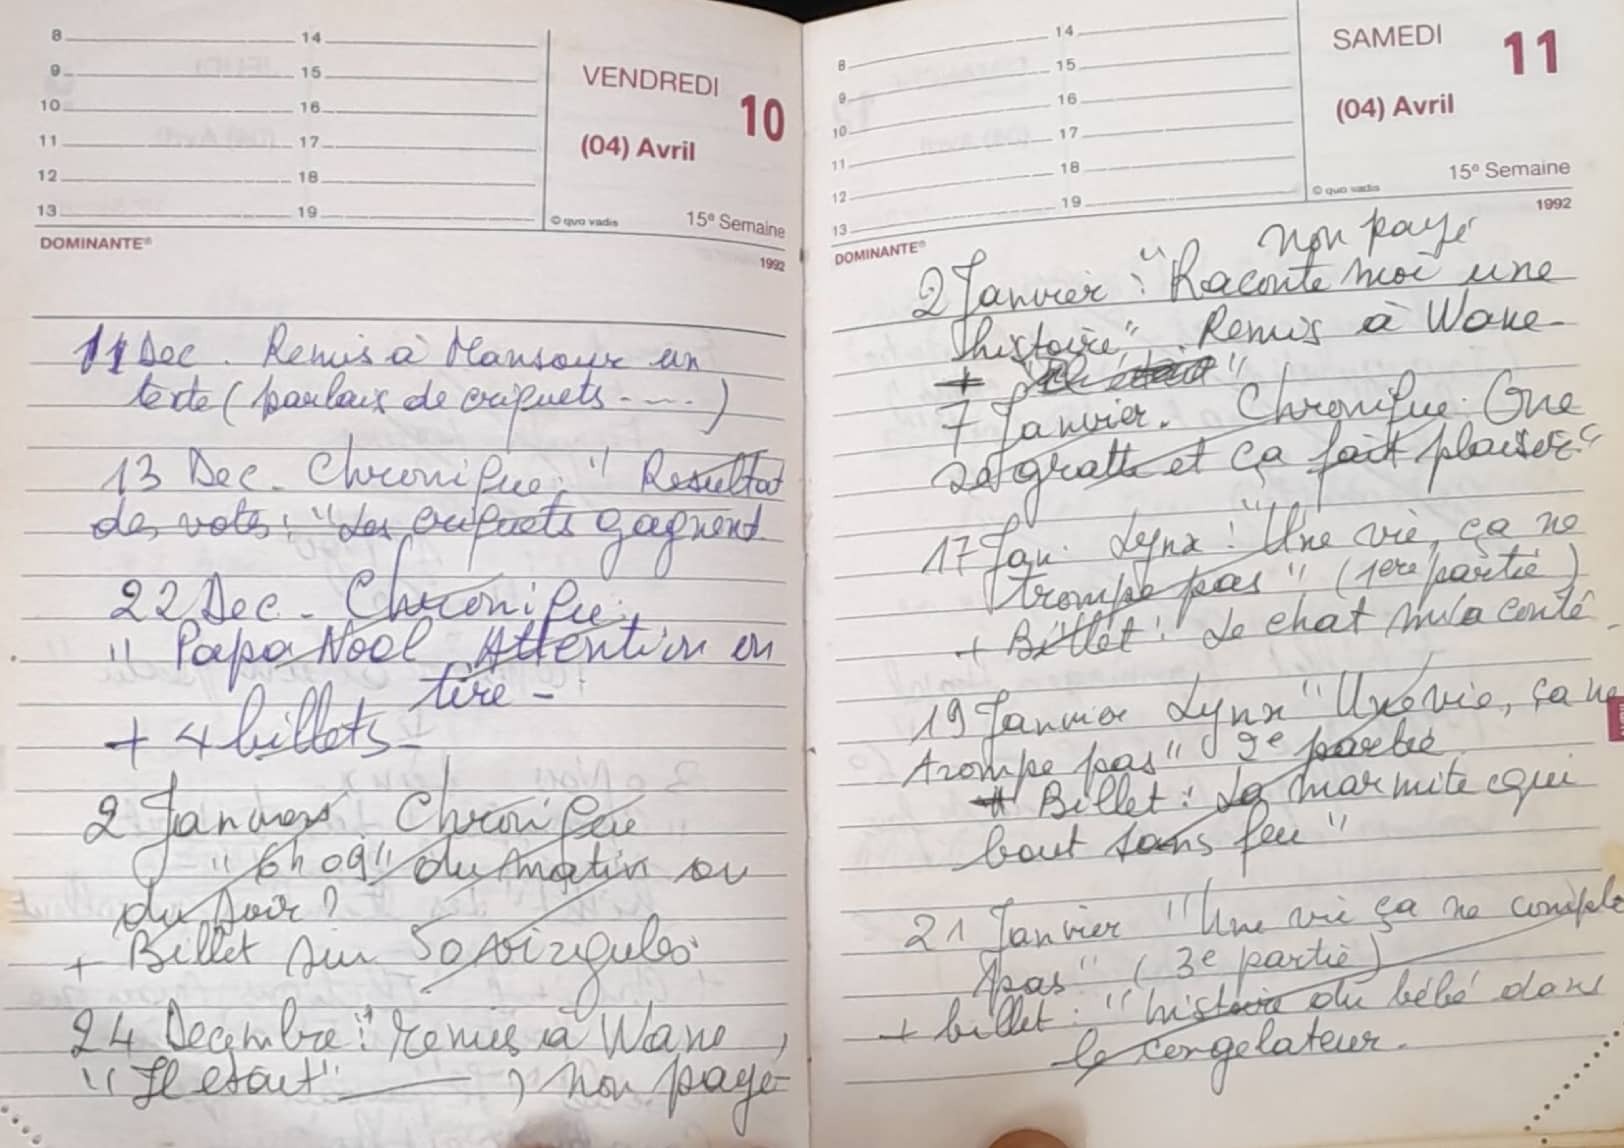 8 14
9 15
10 16
11 17
12 18
13 19
VENDREDI 10
(04) Avril
© quo vadis 15e Semaine
DOMINANTE® 1992
11 Dec. Remis à Mansour un
texte (parlais de criquets ----)
13 Dec. Chronique: " Resultat
des votes: "Les criquets gagnent
22 Dec - Chronique:
" Papa Noel Attention on
tire -
+ 4 billets -
2 Janvier Chronique
" 6h 09" du matin ou
du soir ?
+ Billet sur 50 virgules
24 Decembre: remis à Wane,
"Il etait" ——— , non payé
8 14
9 15
10 16
11 17
12 18
13 19
SAMEDI 11
(04) Avril
© quo vadis 15e Semaine
DOMINANTE® 1992
non payé
2 Janvier: "Raconte moi une
histoire". Remis à Wane -
+ "Il etait"
7 Janvier. Chronique. One
se gratte et ça fait plaisir"
17 Jan. Lynx: "Une vie, ça ne
trompe pas" (1ere partie)
+ Billet: Le chat m'a conté -
19 Janvier Lynx "Une vie, ça ne
trompe pas" 2e partie
+ Billet: La marmite qui
bout sans feu"
21 Janvier "Une vie ça ne
pas" (3e partie)
+ billet: "histoire du bébé dans
le congelateur.